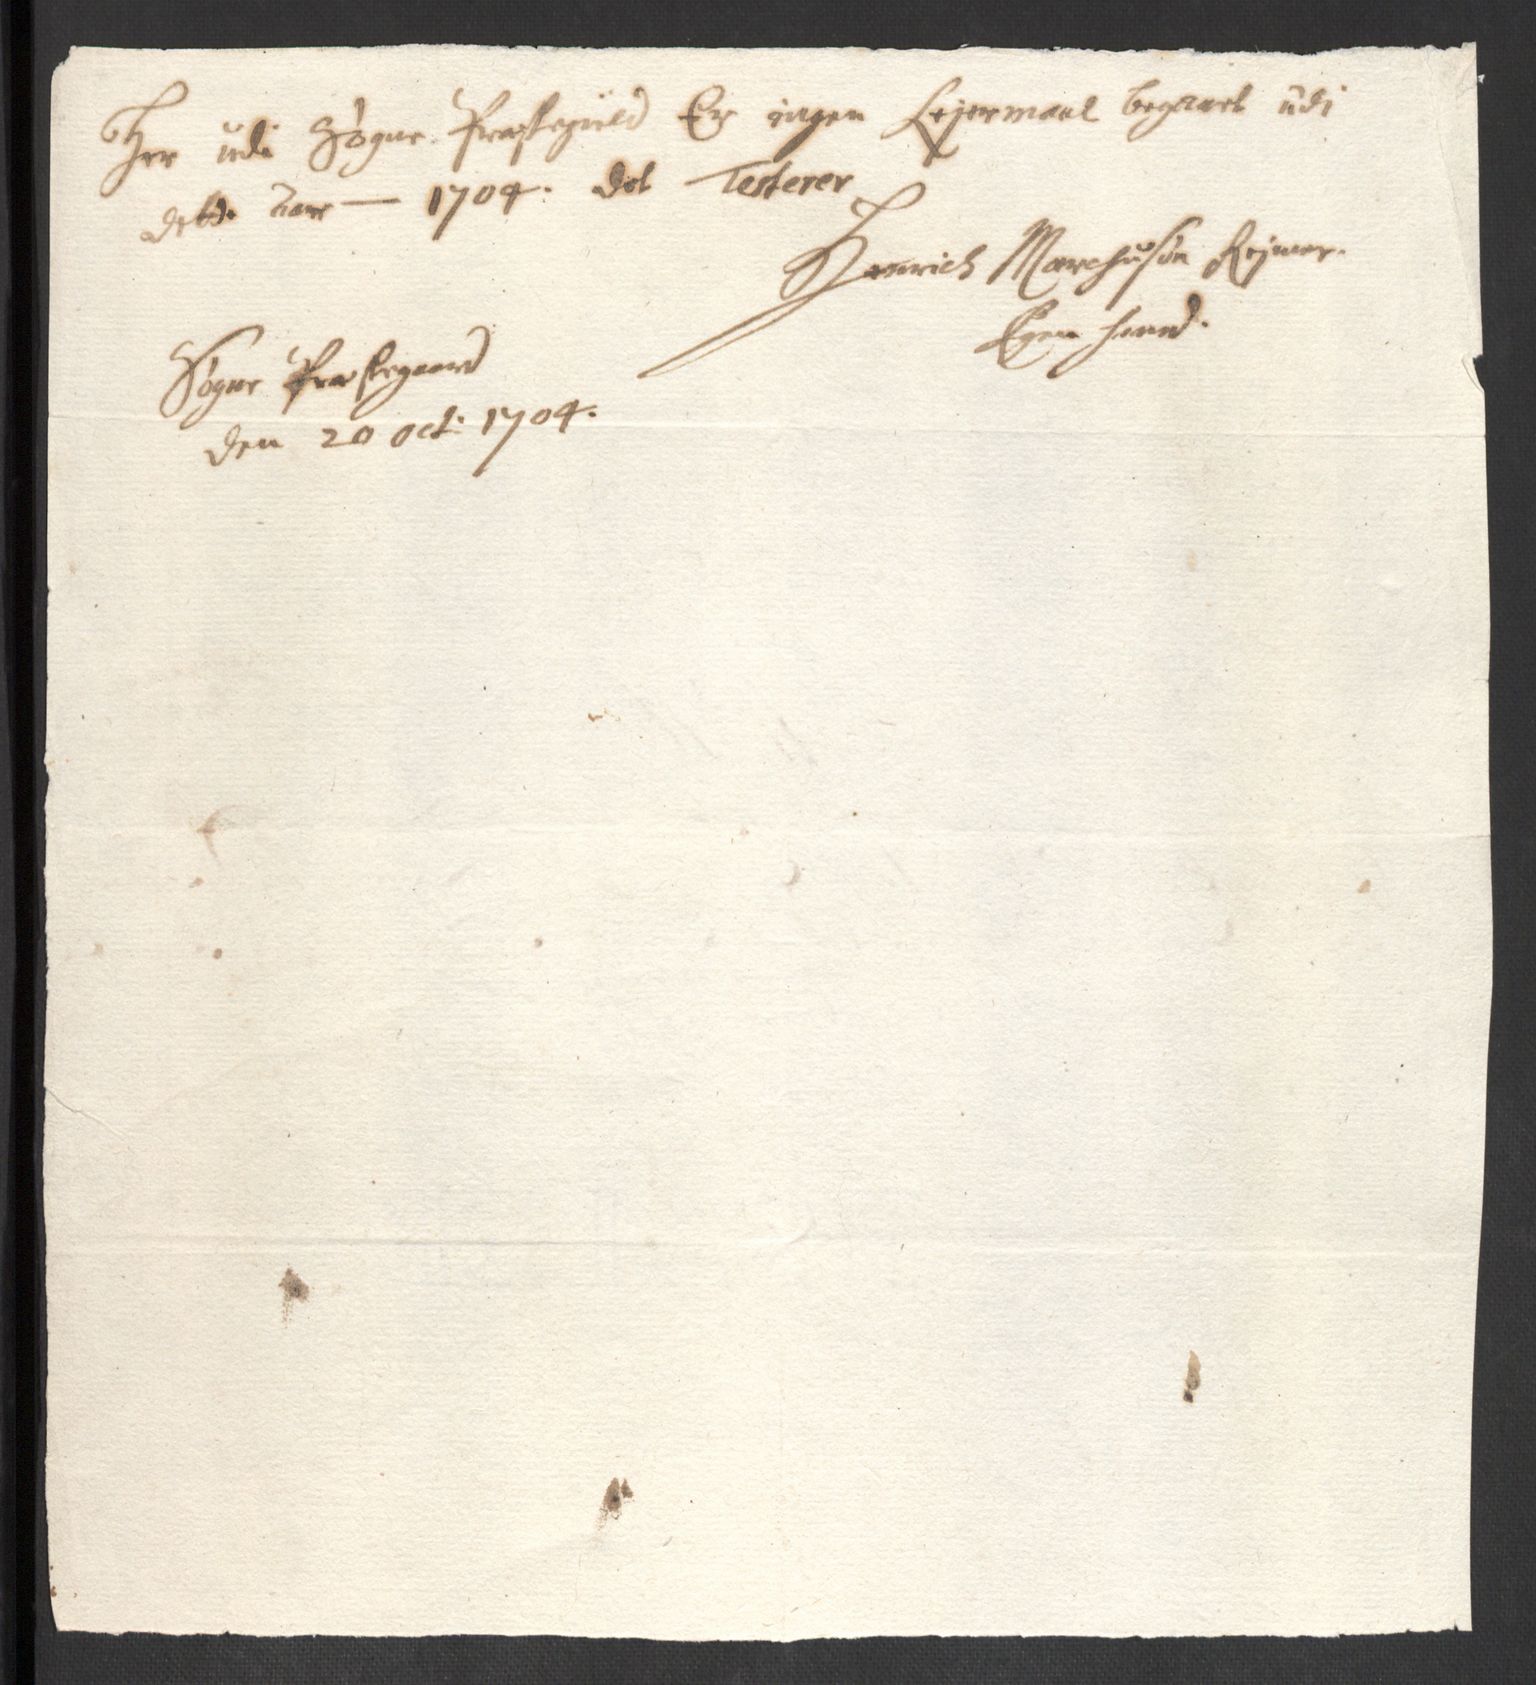 Her udi Søgne Præstegield Er ingen Lejermaal begaaet udi
dette aar — 1704. det Testerer
Henrich Marchusøn Rejmer.
Egen haand.
Søgne Præstegaard
den 20 oct: 1704.